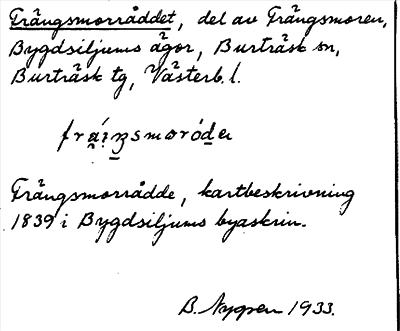 Trångsmorråddet, del av Trångsmoren,
Bygdsiljums ägor, Burträsk sn,
Burträsk tg, Västerb. l.
Trångsmorrådde, kartbeskrivning
1839 i Bygdsiljums byaskrin.
B. Nygren 1933.